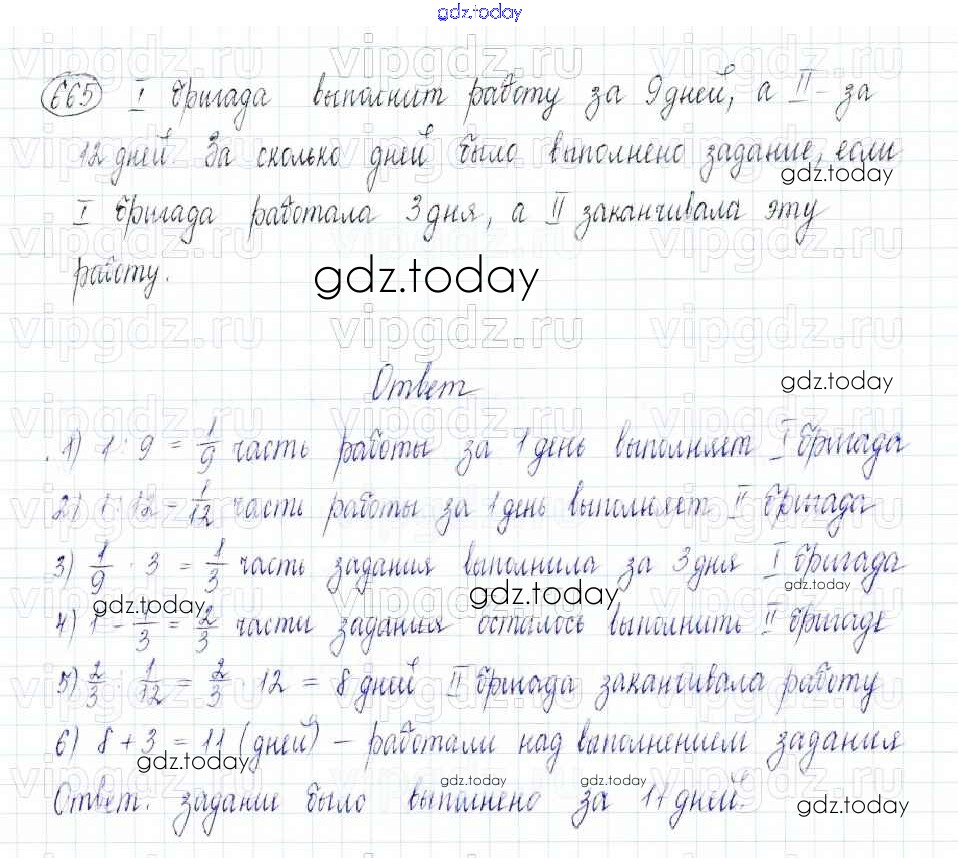 gdz.today
665 I бригада выполнит работу за 9 дней, а II - за
12 дней. За сколько дней было выполнено задание, если
gdz.today
I бригада работала 3 дня, а II заканчивала эту
работу.
gdz.today
vipgdz.ru vipgdz.ru vipgdz.ru
Ответ
gdz.today
1) 1 : 9 = 1/9 часть работы за 1 день выполняет I бригада
2) 1 : 12 = 1/12 часть работы за 1 день выполняет II бригада
3) 1/9 · 3 = 1/3 часть задания выполнила за 3 дня I бригада
gdz.today gdz.today gdz.today
4) 1 - 1/3 = 2/3 части задания осталось выполнить II бригаде
5) 2/3 : 1/12 = 2/3 · 12 = 8 дней II бригада заканчивала работу
6) 8 + 3 = 11 (дней) – работали над выполнением задания
gdz.today gdz.today gdz.today
Ответ: задание было выполнено за 11 дней.
gdz.today